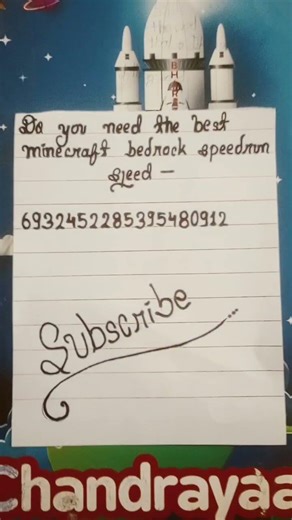 Do you need the best
minecraft bedrock speedrun
seed —
6932452285395480912
Subscribe
Chandrayaa